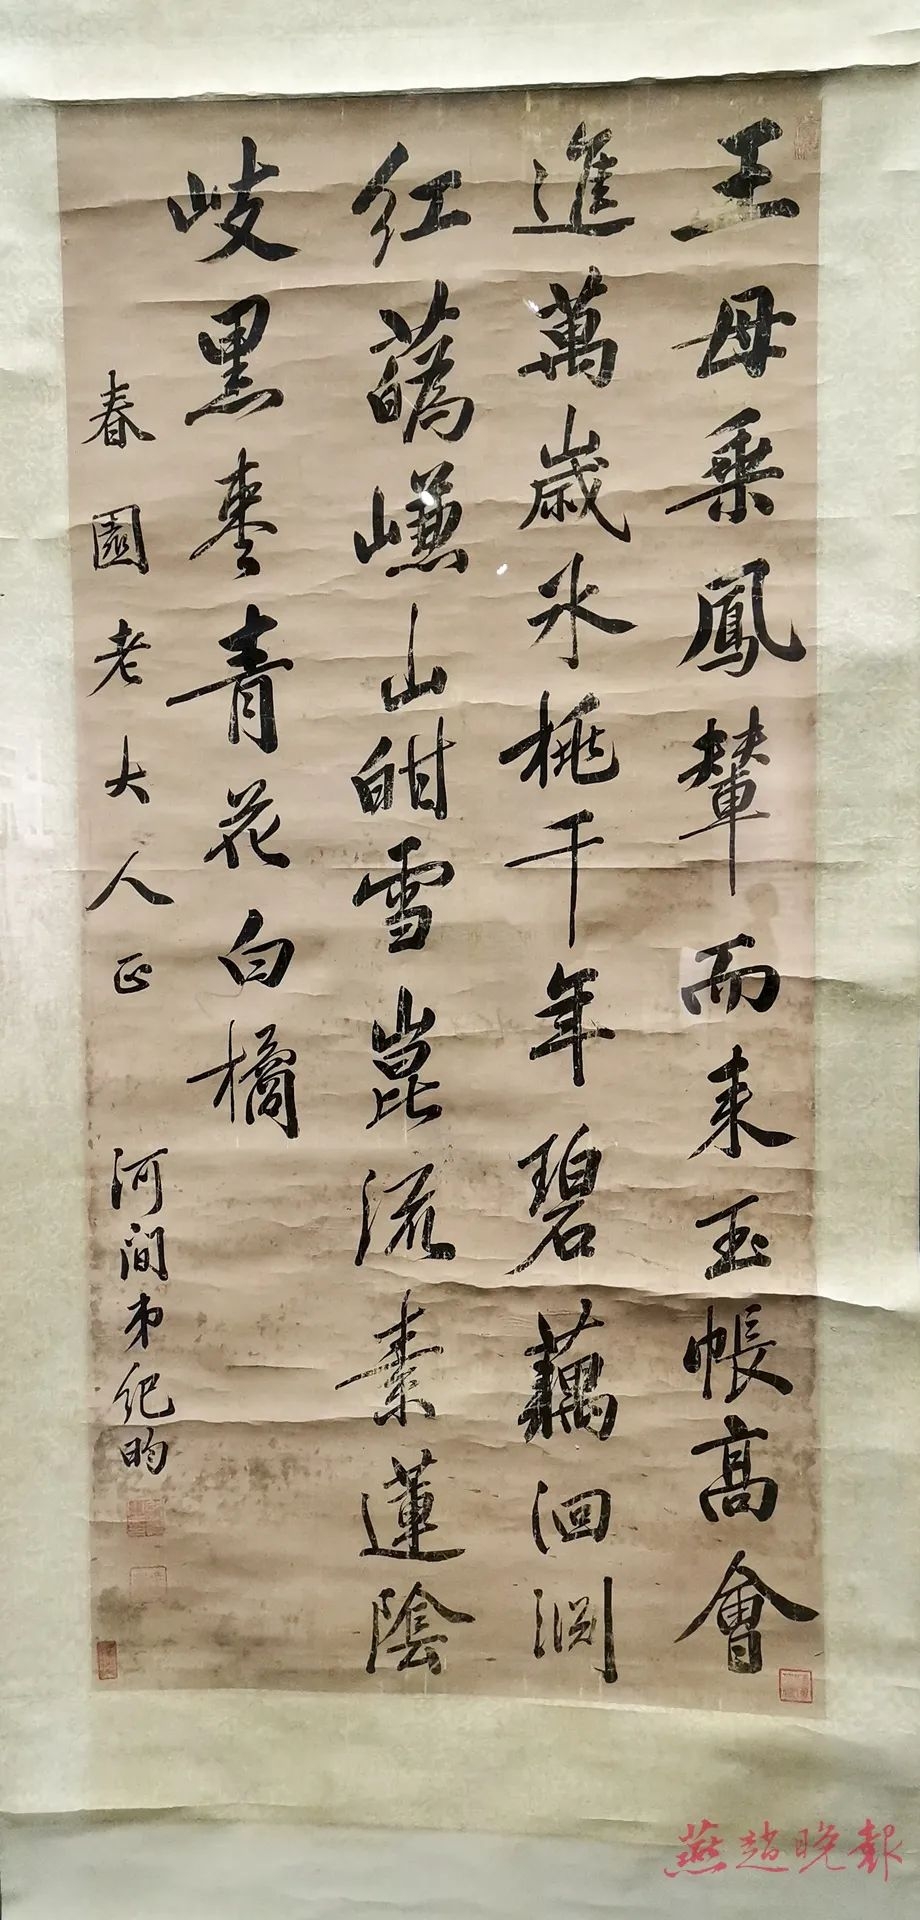 王母乗鳳輦而来玉帳高會
進萬歲氷桃千年碧藕洄淵
紅蕅嵰山甜雪崑流素蓮陰
岐黒棗青花白橘
春園老大人正
河間弟紀昀
燕趙晚報